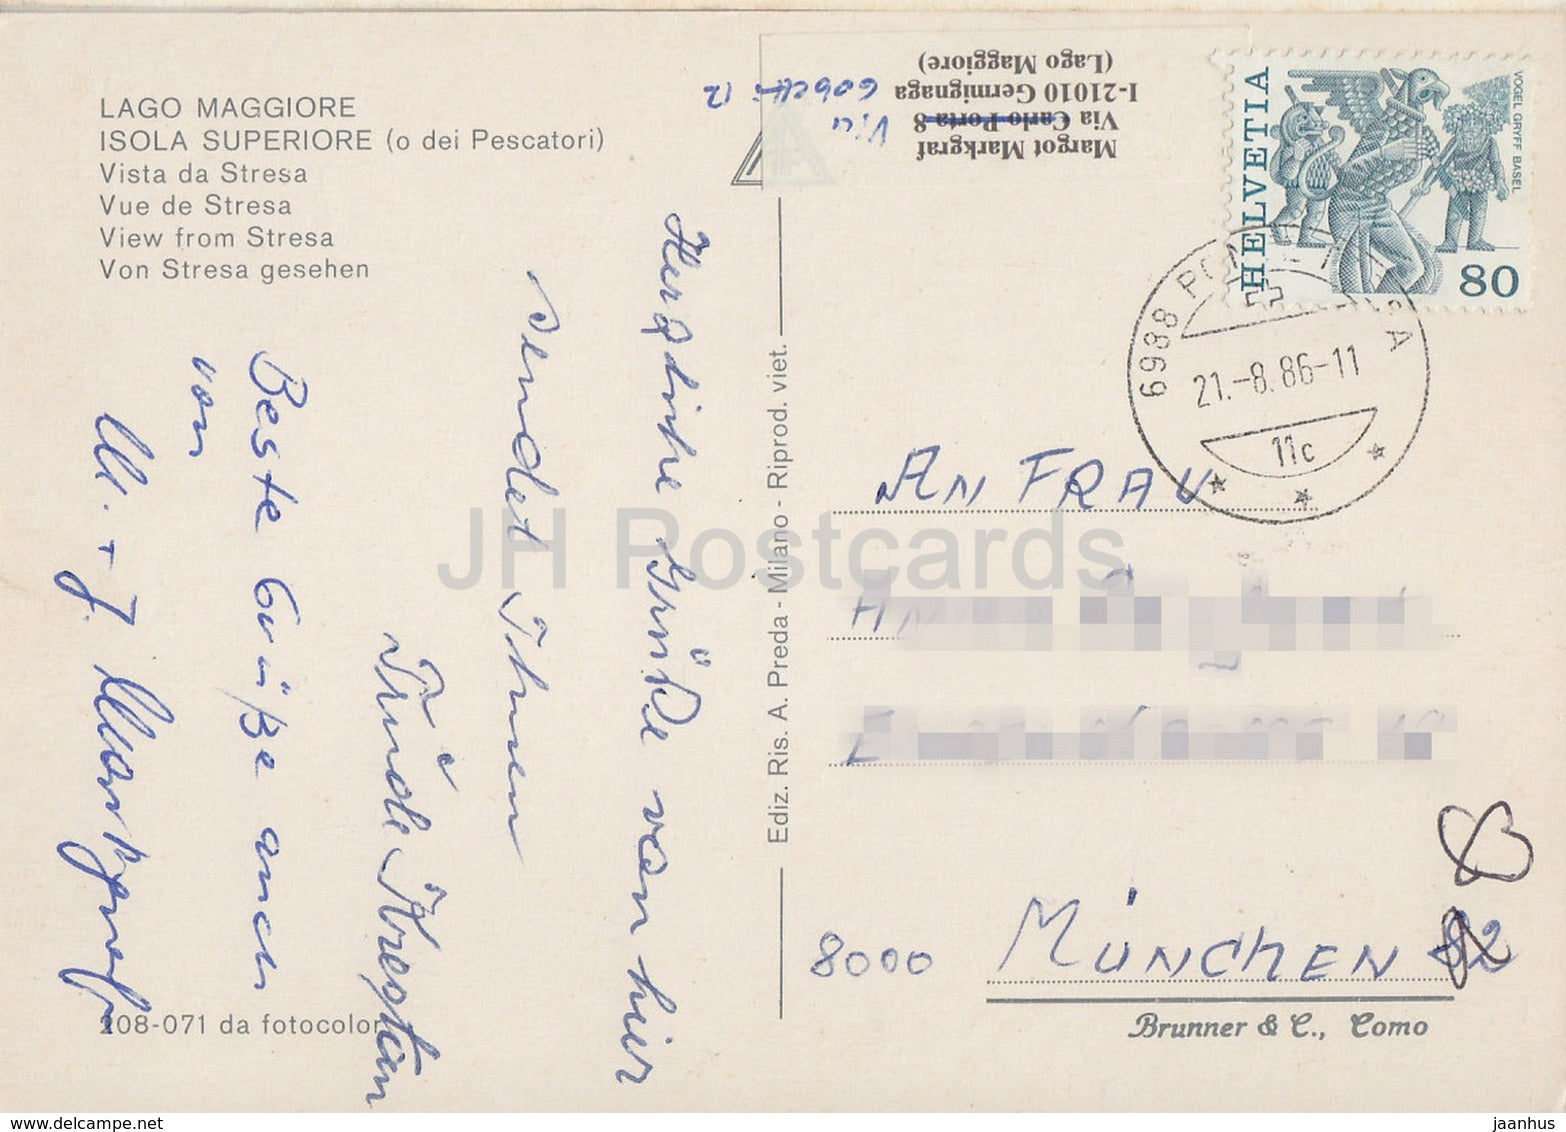 LAGO MAGGIORE
ISOLA SUPERIORE (o dei Pescatori)
Vista da Stresa
Vue de Stresa
View from Stresa
Von Stresa gesehen
Margot Markgraf
Via Carlo Porta 8
Via
I-21010 Germignaga
Gobetti 12
(Lago Maggiore)
HELVETIA
VOGEL GRYFF BASEL
80
6988 PO
SA
21.-8.86-11
11c
Herzliche Grüße von hier
sendet Ihnen
Trude
Beste Grüße auch
von
M. + J. Markgraf
Ediz. Ris. A. Preda - Milano - Riprod. viet.
AN FRAU
8000 MÜNCHEN 82
Brunner & C., Como
208-071 da fotocolor
JH Postcards
www.delcampe.net
jaanhus